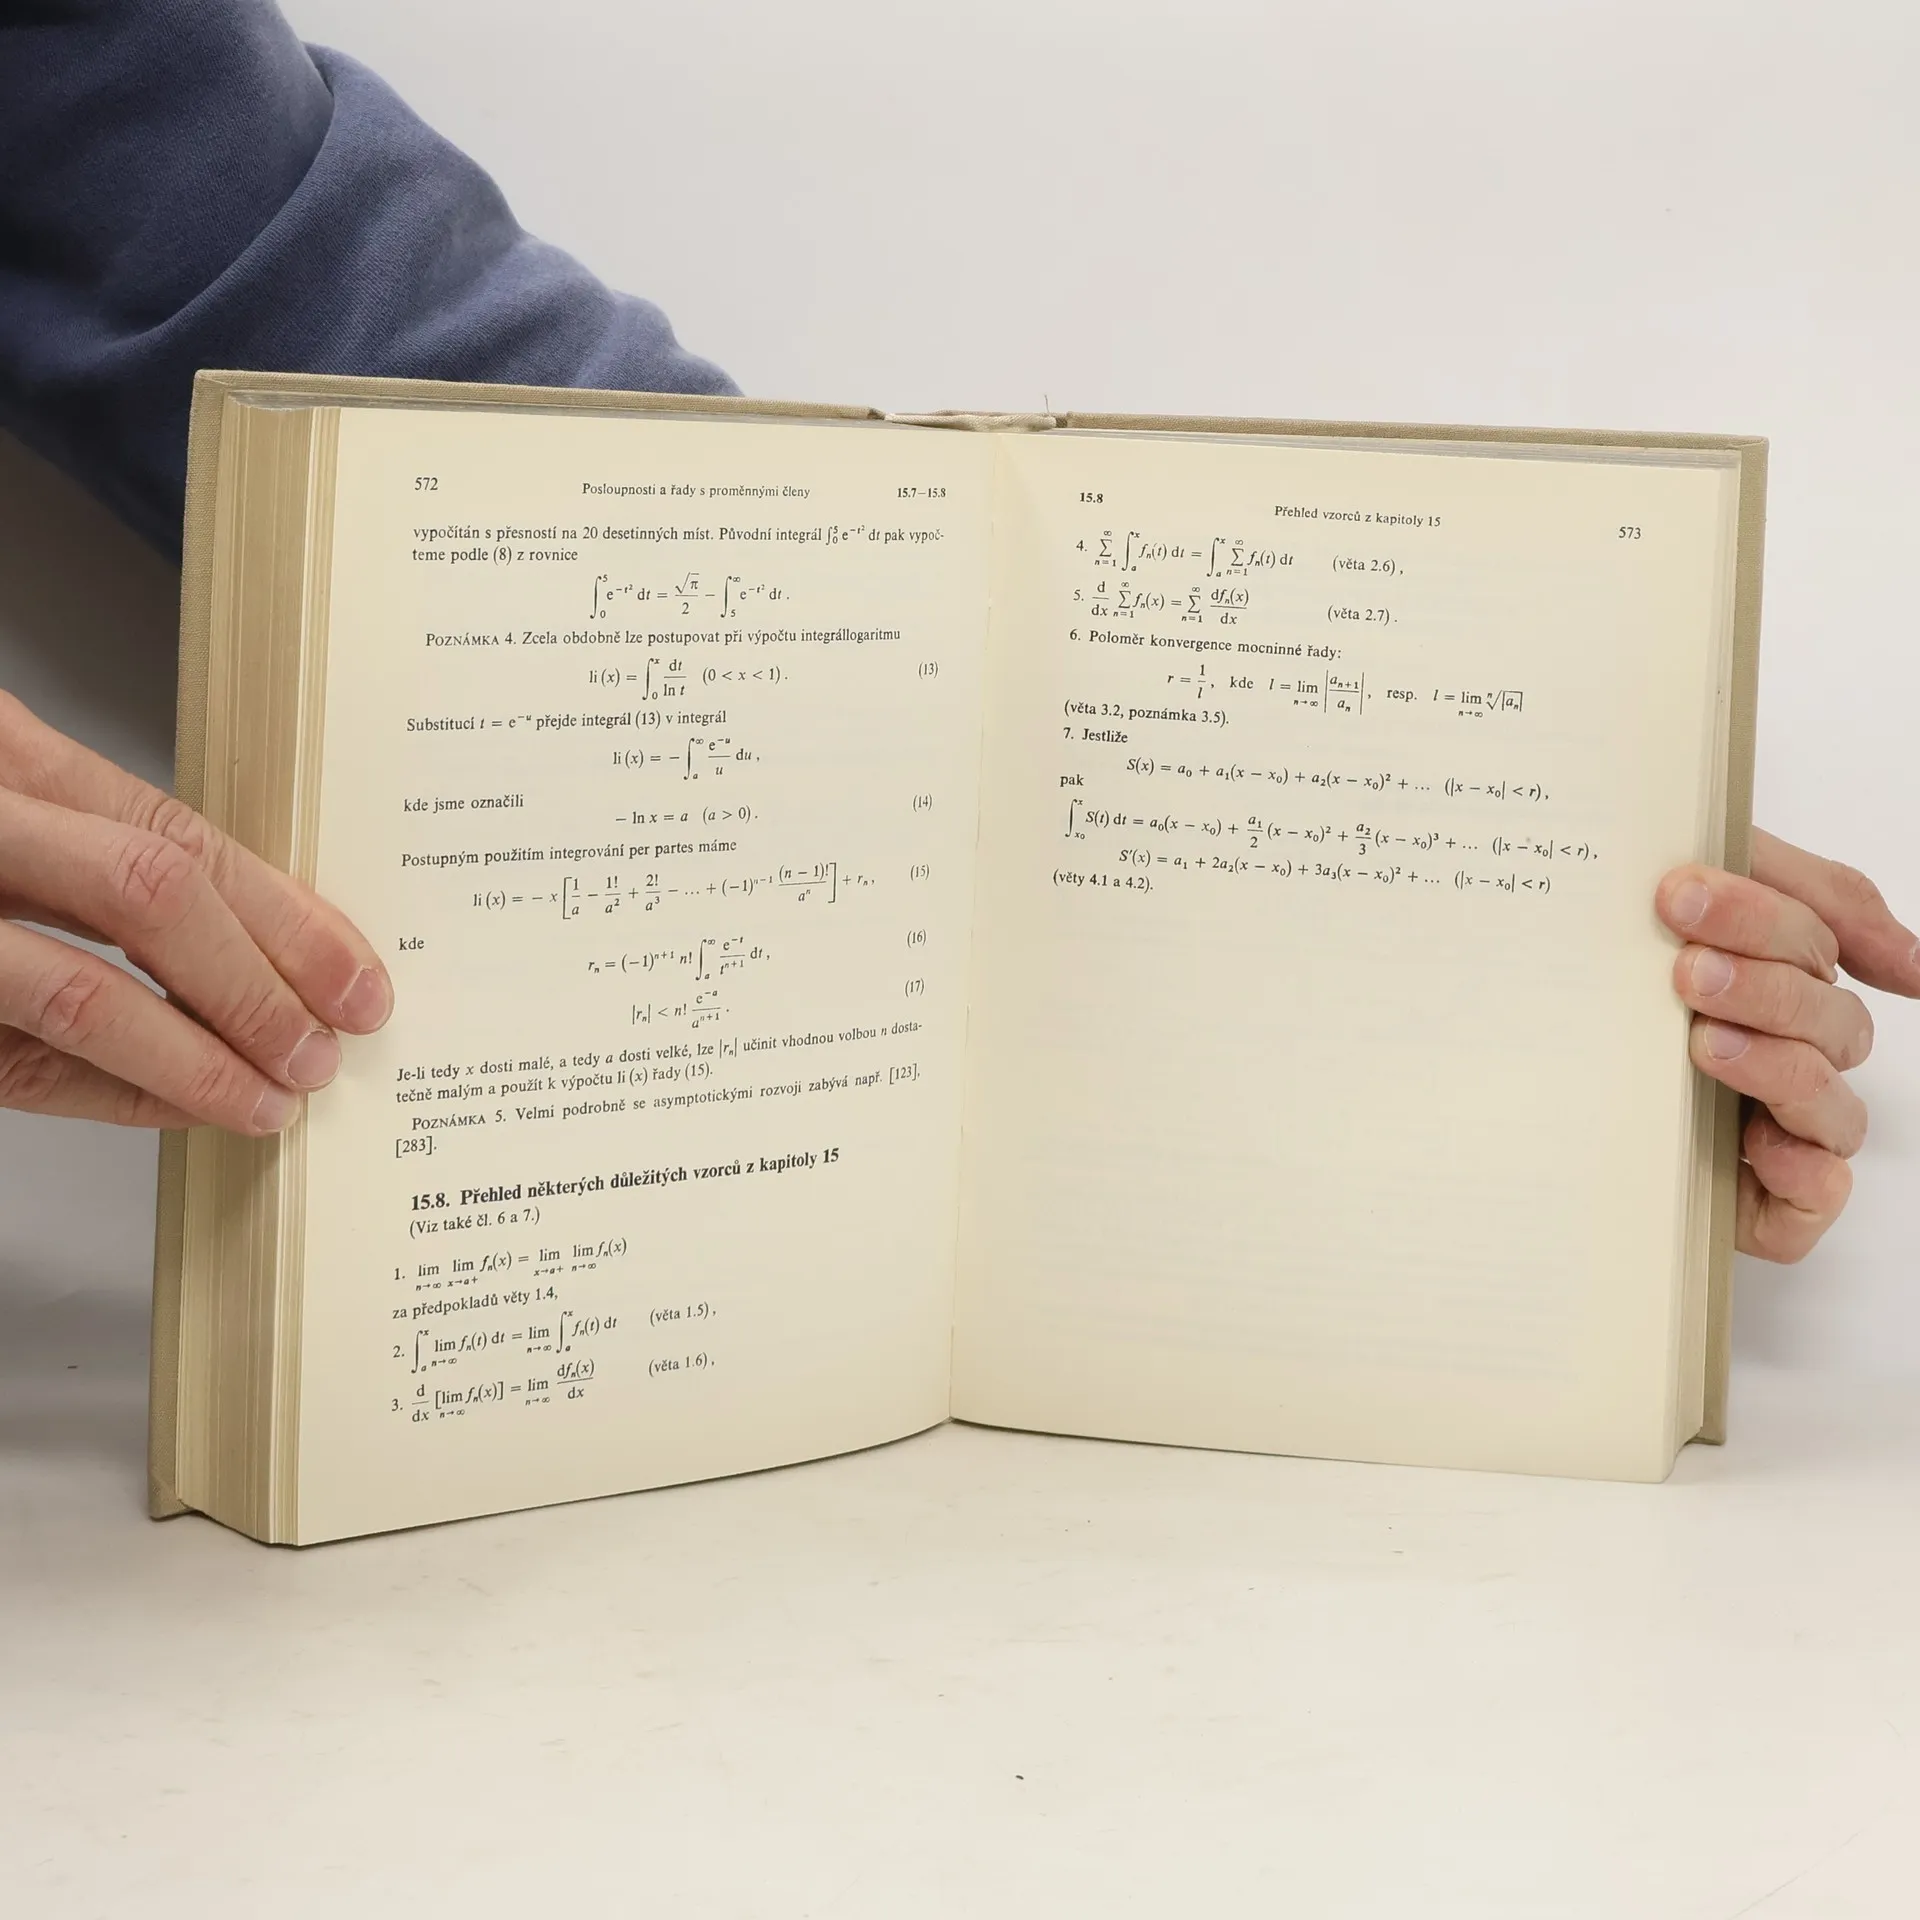 572 Posloupnosti a řady s proměnnými členy 15.7–15.8
vypočítán s přesností na 20 desetinných míst. Původní integrál ∫₀⁵ e^{−t²} dt pak vypoč-
teme podle (8) z rovnice
∫₀⁵ e^{−t²} dt = √π/2 − ∫₅^∞ e^{−t²} dt .
POZNÁMKA 4. Zcela obdobně lze postupovat při výpočtu integrállogaritmu
li (x) = ∫₀ˣ dt/ln t (0 < x < 1) . (13)
Substitucí t = e^{−u} přejde integrál (13) v integrál
li (x) = − ∫ₐ^∞ e^{−u}/u du ,
kde jsme označili
− ln x = a (a > 0) . (14)
Postupným použitím integrování per partes máme
li (x) = − x [1/a − 1!/a² + 2!/a³ − … + (−1)^{n−1} (n − 1)!/aⁿ] + rₙ , (15)
kde
rₙ = (−1)^{n+1} n! ∫ₐ^∞ e^{−t}/t^{n+1} dt , (16)
|rₙ| < n! e^{−a}/a^{n+1} . (17)
Je-li tedy x dosti malé, a tedy a dosti velké, lze |rₙ| učinit vhodnou volbou n dosta-
tečně malým a použít k výpočtu li (x) řady (15).
POZNÁMKA 5. Velmi podrobně se asymptotickými rozvoji zabývá např. [123],
[283].
15.8. Přehled některých důležitých vzorců z kapitoly 15
(Viz také čl. 6 a 7.)
1. lim_{n→∞} lim_{x→a+} fₙ(x) = lim_{x→a+} lim_{n→∞} fₙ(x)
za předpokladů věty 1.4,
2. ∫ₐˣ lim_{n→∞} fₙ(t) dt = lim_{n→∞} ∫ₐˣ fₙ(t) dt (věta 1.5) ,
3. d/dx [lim_{n→∞} fₙ(x)] = lim_{n→∞} dfₙ(x)/dx (věta 1.6) ,
15.8 Přehled vzorců z kapitoly 15 573
4. ∑_{n=1}^∞ ∫ₐˣ fₙ(t) dt = ∫ₐˣ ∑_{n=1}^∞ fₙ(t) dt (věta 2.6) ,
5. d/dx ∑_{n=1}^∞ fₙ(x) = ∑_{n=1}^∞ dfₙ(x)/dx (věta 2.7) .
6. Poloměr konvergence mocninné řady:
r = 1/l , kde l = lim_{n→∞} |aₙ₊₁/aₙ| , resp. l = lim_{n→∞} ⁿ√|aₙ|
(věta 3.2, poznámka 3.5).
7. Jestliže
S(x) = a₀ + a₁(x − x₀) + a₂(x − x₀)² + … (|x − x₀| < r) ,
pak
∫_{x₀}^x S(t) dt = a₀(x − x₀) + a₁/2 (x − x₀)² + a₂/3 (x − x₀)³ + … (|x − x₀| < r) ,
S′(x) = a₁ + 2a₂(x − x₀) + 3a₃(x − x₀)² + … (|x − x₀| < r)
(věty 4.1 a 4.2).